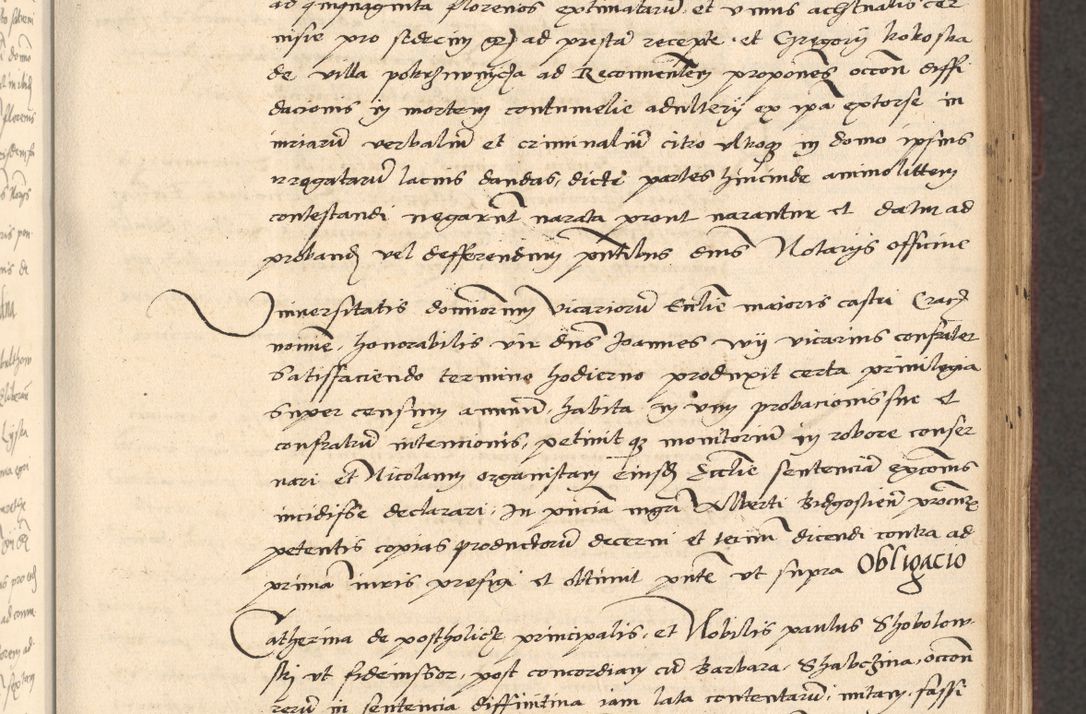 ad quinquaginta florenos extimatarum et vnius achtualis cer
nisie pro sedecim gr ad presta recepte et Gregorii kokoska
de villa pokrziwnycza ad Reconuentem proponens occon diffi
dacionis in mortem contumelie adulterii ex ipa extorse in
iuriarum verbalium et criminalium citro vltroq in domo ipsius
irrogatarum lacius dandas, dicte partes hincinde animo littem
contestandi negarunt narata prout narantur et datur ad
proband vel defferendum pntibus dnis Notariis officine
Vniuersitatis dominorum Vicariorum Ecclie maioris castri Crac
nomine, honorabilis vir dns Joannes vicarius confrater
satisfaciendo termino hodierno produxit certa priuilegia
super censum annuum, habita in vim probacionis sue et
confratrum intencionis, petiuit q monitorium in robore conser
uari et Nicolaum organistam eiusd Ecclie sentenciam excomis
incidisse declarari. In pncia mgri Alberti Bidgostien procuris
petentis copias productorum decerni et terminum dicendi contra ad
primam iuris prefigi et obtinuit pnte vt supra Obligacio
Catherina de postholicze principalis, et Nobilis paulus Shobolow
skj vt fideiussor, post concordiam cum Barbara, Skabczina, occon
rerum in sentencia diffinitiua iam lata contentarum, initam, fassi